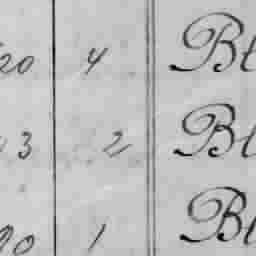 20 4 Bl
3 2 Bl
20 1 Bl